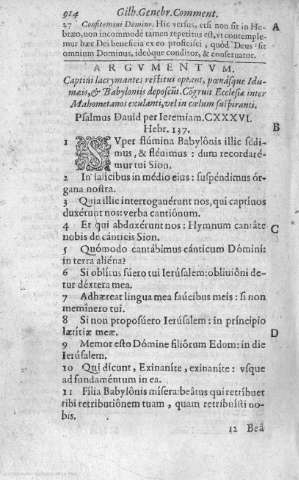 914 Gilb. Genebr. Comment.
27 Confitemini Domino. Hic versus, etsi non sit in Hebræo, non incommodè tamen repetitus est, vt contemplemur hæc Dei beneficia ex eo proficisci, quòd Deus sit omnium Dominus, ideóque conditor, & conseruator.
ARGVMENTVM.
Captiui lacrymantes restitui optant, pœnásque Idumæis, & Babylonis deposcũt. Cõgruit Ecclesiæ inter Mahometanos exulanti, vel in cœlum suspiranti.
Psalmus Dauid per Ieremiam. CXXXVI.
Hebr. 137.
B
1 SVper flúmina Babylónis illic sédimus, & fléuimus: dum recordarémur tui Sion.
2 In salicibus in médio eius: suspéndimus órgana nostra.
3 Quia illic interrogauérunt nos, qui captíuos duxérunt nos: verba cantiónum.
4 Et qui abduxérunt nos: Hymnum cantáte nobis de cánticis Sion.
C
5 Quómodo cantábimus cánticum Dómini: in terra aliéna?
6 Si oblítus fúero tui Ierúsalem: obliuióni detur déxtera mea.
7 Adhæreat lingua mea faúcibus meis: si non memínero tui.
8 Si non proposúero Ierúsalem: in princípio lætítiæ meæ.
D
9 Memor esto Dómine filiórum Edom: in die Ierúsalem.
10 Qui dicunt, Exinaníte, exinaníte: vsque ad fundaméntum in ea.
11 Filia Babylónis mísera: beátus qui retríbuet tibi retributiónem tuam, quam retribuísti nobis.
12 Beá